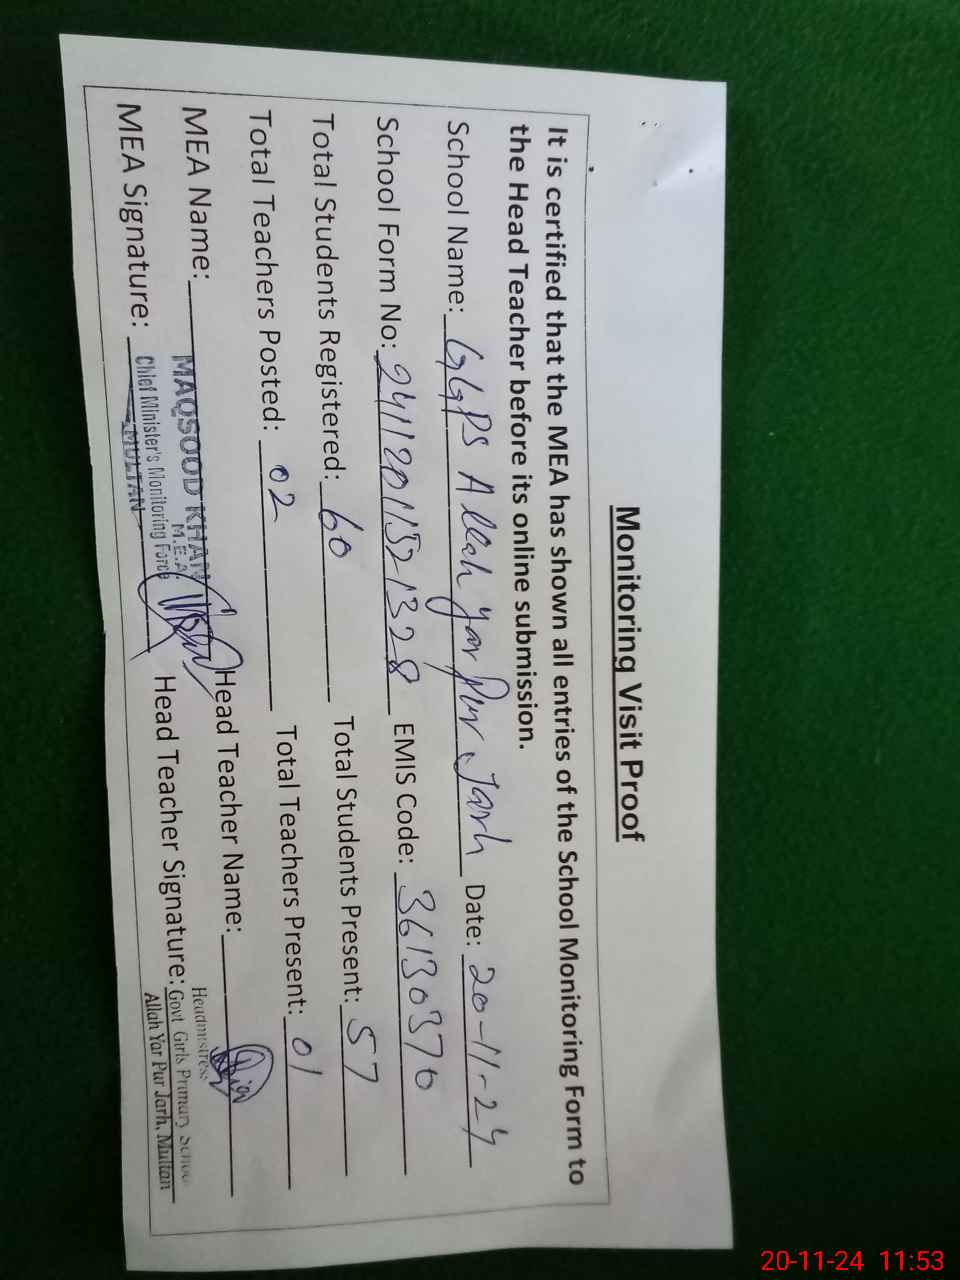 Monitoring Visit Proof
It is certified that the MEA has shown all entries of the School Monitoring Form to
the Head Teacher before its online submission.
School Name: GGPS Allah Yar Pur Jarh Date: 20-11-24
School Form No: 24112011521328 EMIS Code: 36130370
Total Students Registered: 60 Total Students Present: 57
Total Teachers Posted: 02 Total Teachers Present: 01
MEA Name: MAQSOOD KHAN Head Teacher Name:
M.E.A.
MEA Signature: Chief Minister's Monitoring Force Head Teacher Signature:
MULTAN
Headmistress
Govt Girls Primary School
Allah Yar Pur Jarh, Multan
20-11-24 11:53